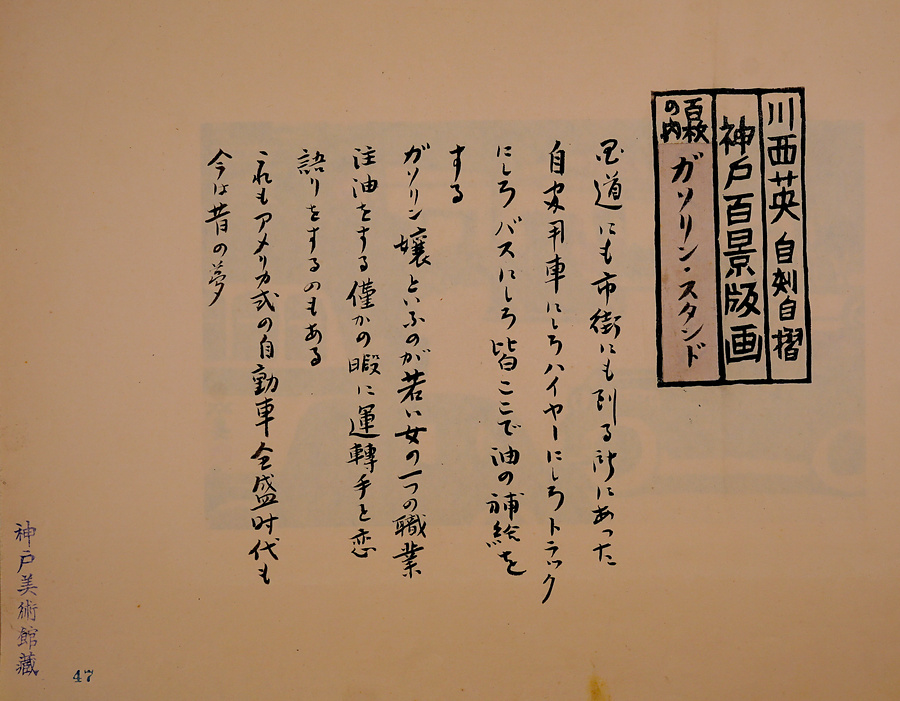 川西英 自刻自摺
神戸百景版画
百枚の内 ガソリン・スタンド
国道にも市街にも到る所にあった
自家用車にしろハイヤーにしろトラック
にしろバスにしろ皆ここで油の補給を
する
ガソリン嬢といふのが若い女の一つの職業
注油をする僅かの暇に運轉手と恋
語りをするのもある
これもアメリカ式の自動車全盛時代も
今は昔の夢
神戸美術館藏
47